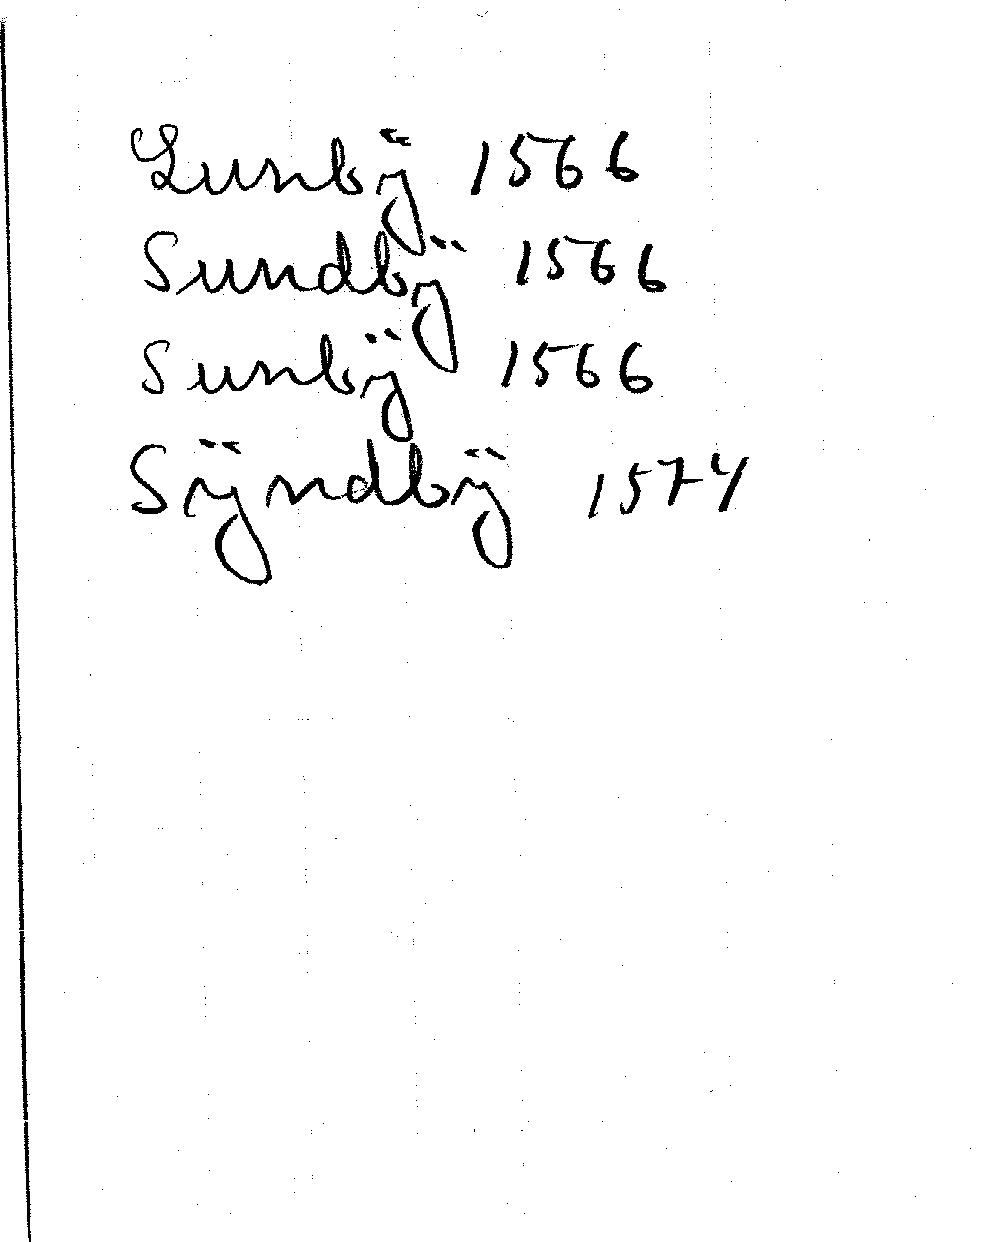 Lunbÿ 1566
Sundbÿ 1566
Sunbÿ 1566
Sÿndbÿ 1574